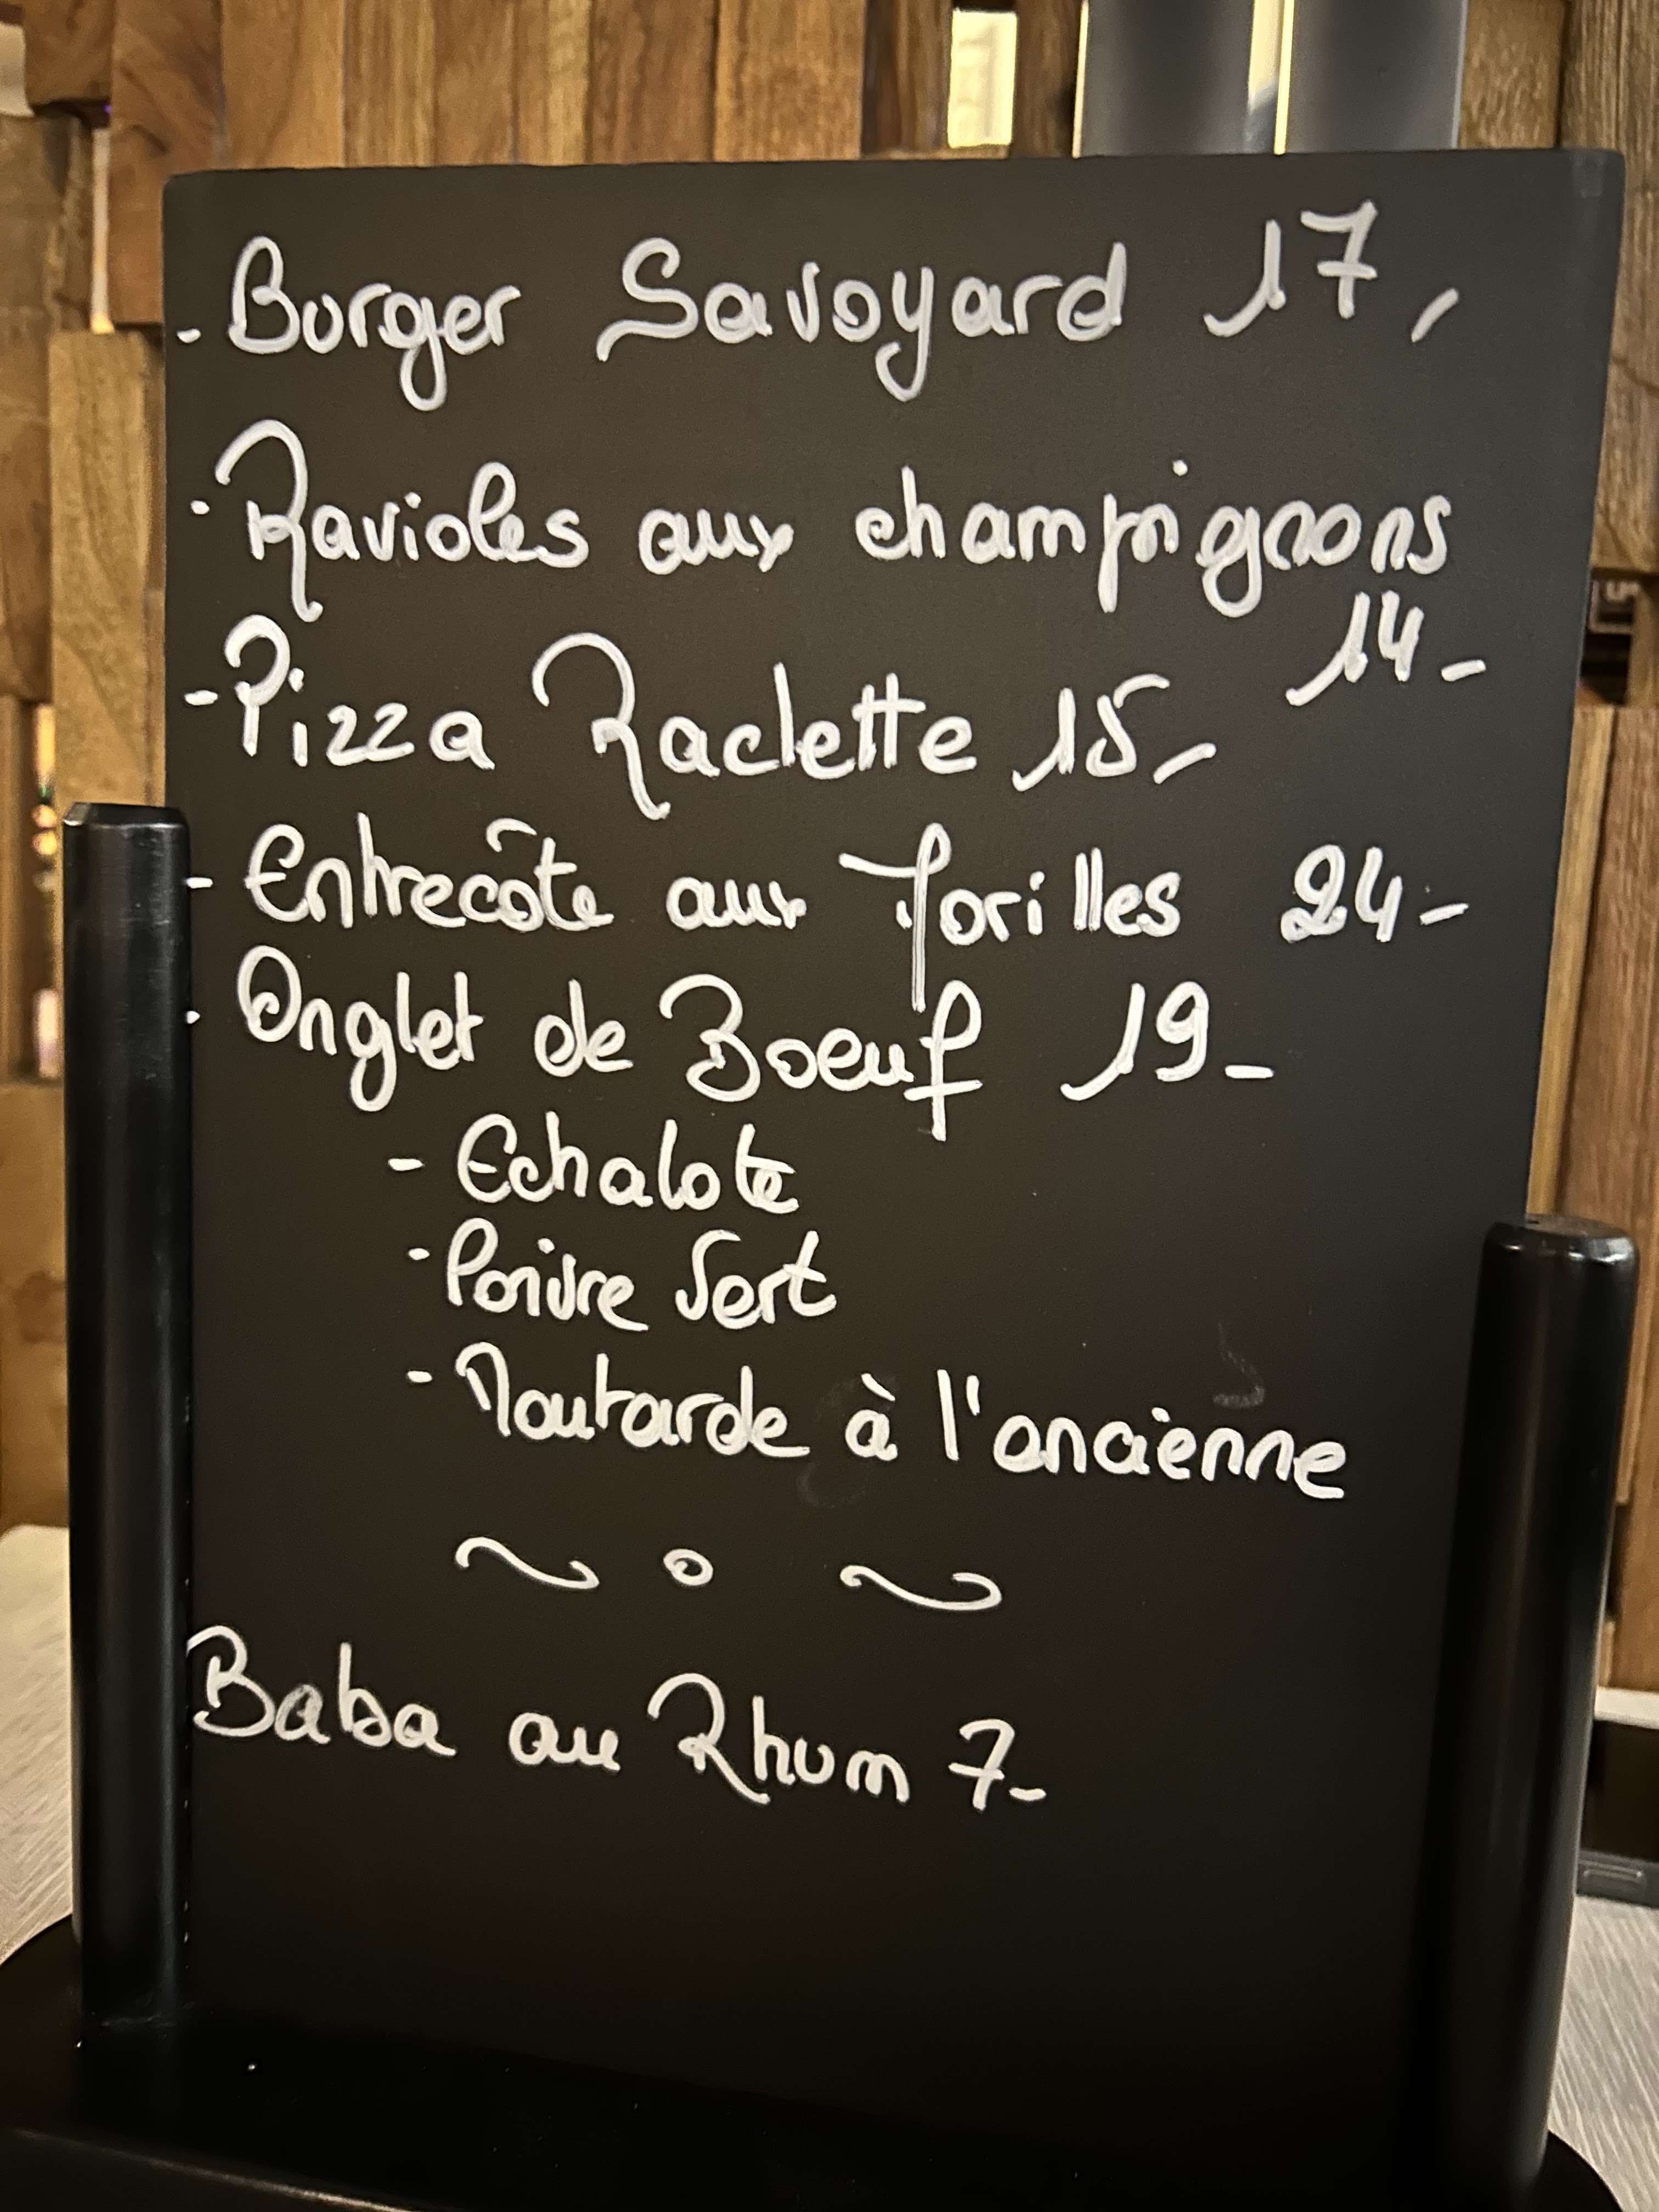 - Burger Savoyard 17,
- Ravioles aux champignons
14-
- Pizza Raclette 15,-
- Entrecôte aux Morilles 24-
- Onglet de Boeuf 19-
- Echalote
- Poivre Vert
- Moutarde à l'ancienne
~ o ~
Baba au Rhum 7-